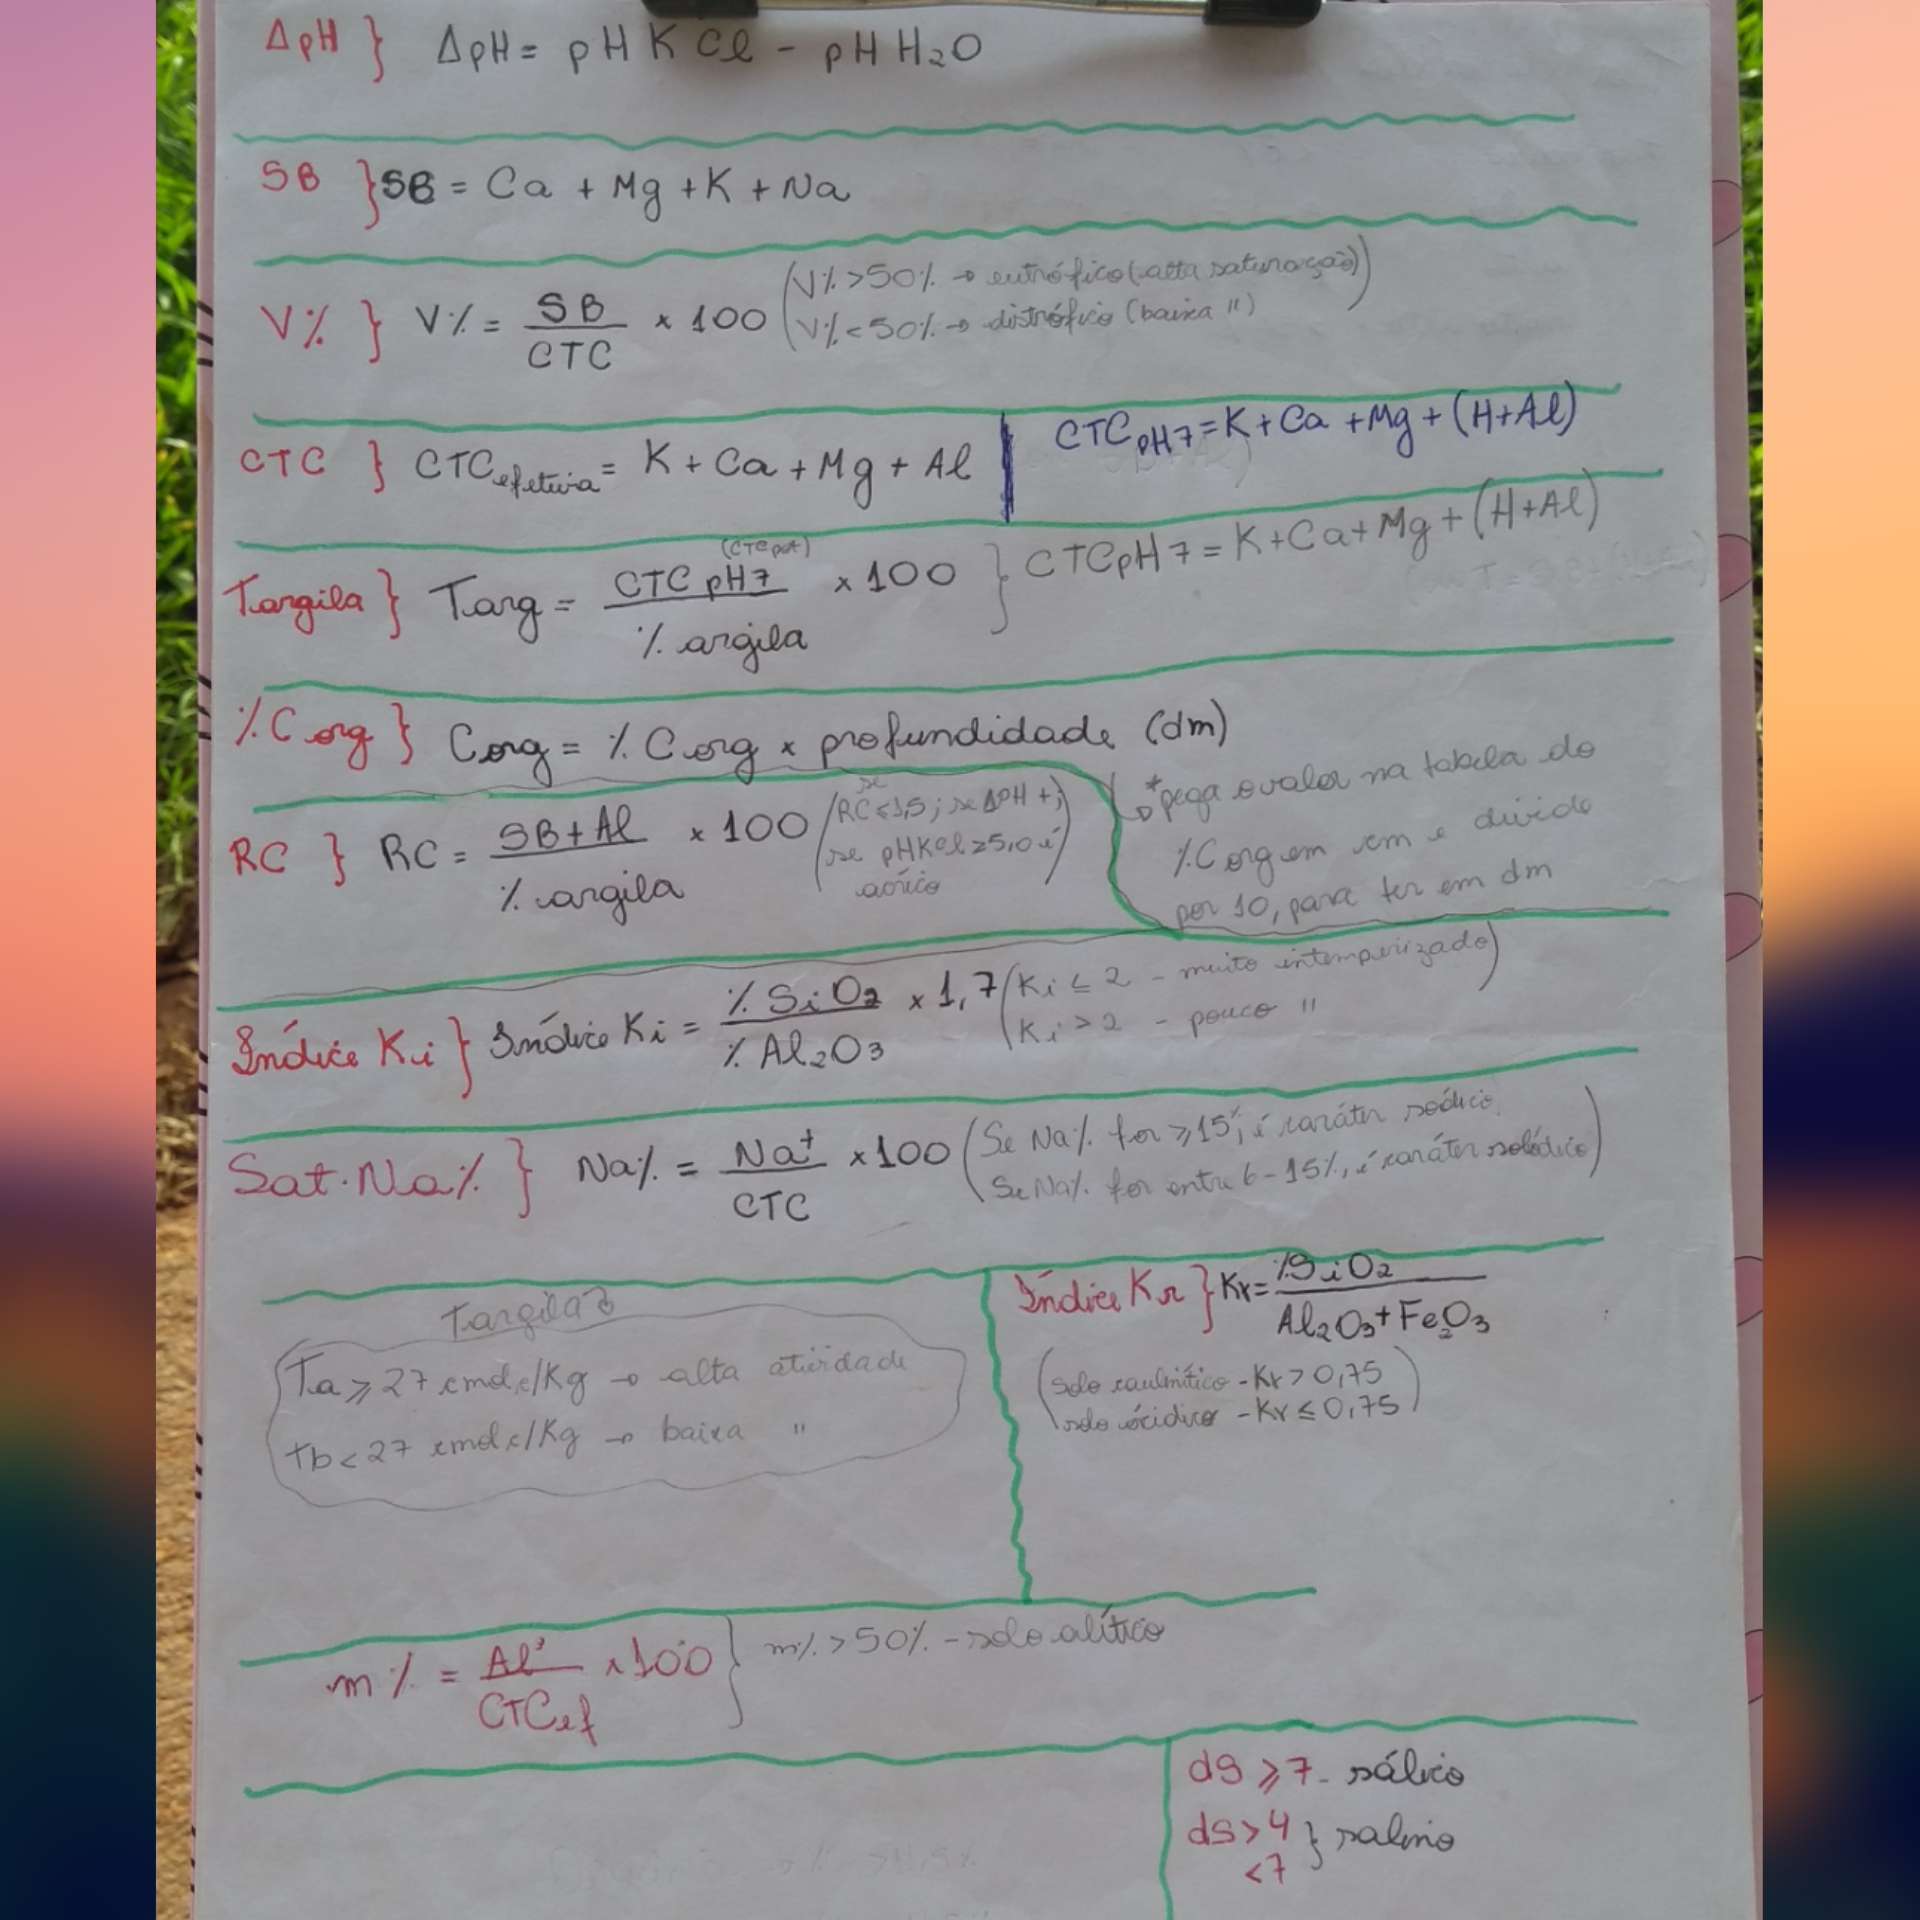 ΔpH } ΔpH = pH KCl - pH H₂O
SB } SB = Ca + Mg + K + Na
V% } V% = SB / CTC x 100 (V% > 50% → eutrófico (alta saturação))
(V% < 50% → distrófico (baixa "))
CTC } CTCefetiva = K + Ca + Mg + Al | CTCpH7 = K + Ca + Mg + (H+Al)
Targila } Targ = CTC pH7 (CTC pot) / % argila x 100 } CTCpH7 = K+Ca+Mg+(H+Al)
%Corg } Corg = % Corg x profundidade (dm)
*pega o valor na tabela do
%Corg em cm e divide
por 10, para ter em dm
RC } RC = SB + Al / % argila x 100 (se RC ≤ 1,5; se ΔpH +;
se pHKCl ≥ 5,0 é
acrico)
Índice Ki } Índice Ki = % SiO2 / % Al₂O3 x 1,7 (Ki ≤ 2 - muito intemperizado)
(Ki > 2 - pouco "
Sat. Na% } Na% = Na+ / CTC x 100 (Se Na% for ≥ 15%, é caráter sódico.
Se Na% for entre 6 - 15%, é caráter solódico)
Targila
Ta ≥ 27 cmolc/Kg → alta atividade
Tb < 27 cmolc/Kg → baixa "
Índice Kr } Kr = %SiO2 / Al₂O3 + Fe₂O3
(solo caulinítico - Kr > 0,75
solo - Kr ≤ 0,75)
m% = Al³ / CTCef x 100 } m% > 50% - solo alítico
dS ≥ 7 - sálico
dS > 4 } salino
< 7